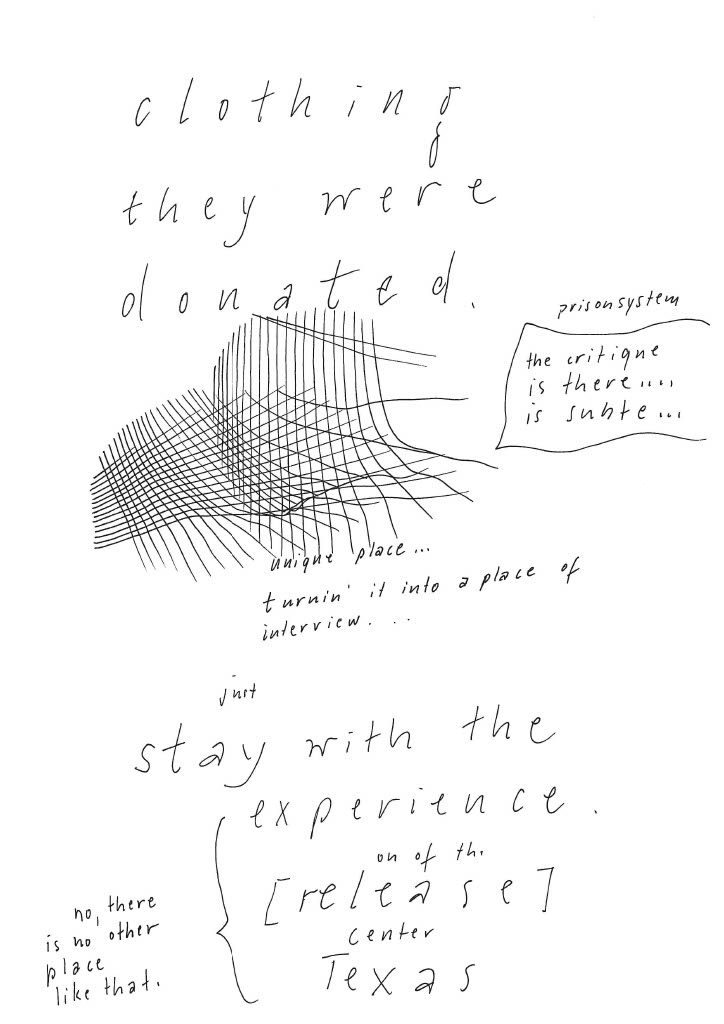 clothing
they were
donated.
prisonsystem
the critique
is there.....
is subte...
unique place...
turnin' it into a place of
interview. . .
just
stay with the
experience.
on of th.
[release]
center
Texas
no, there
is no other
place
like that.